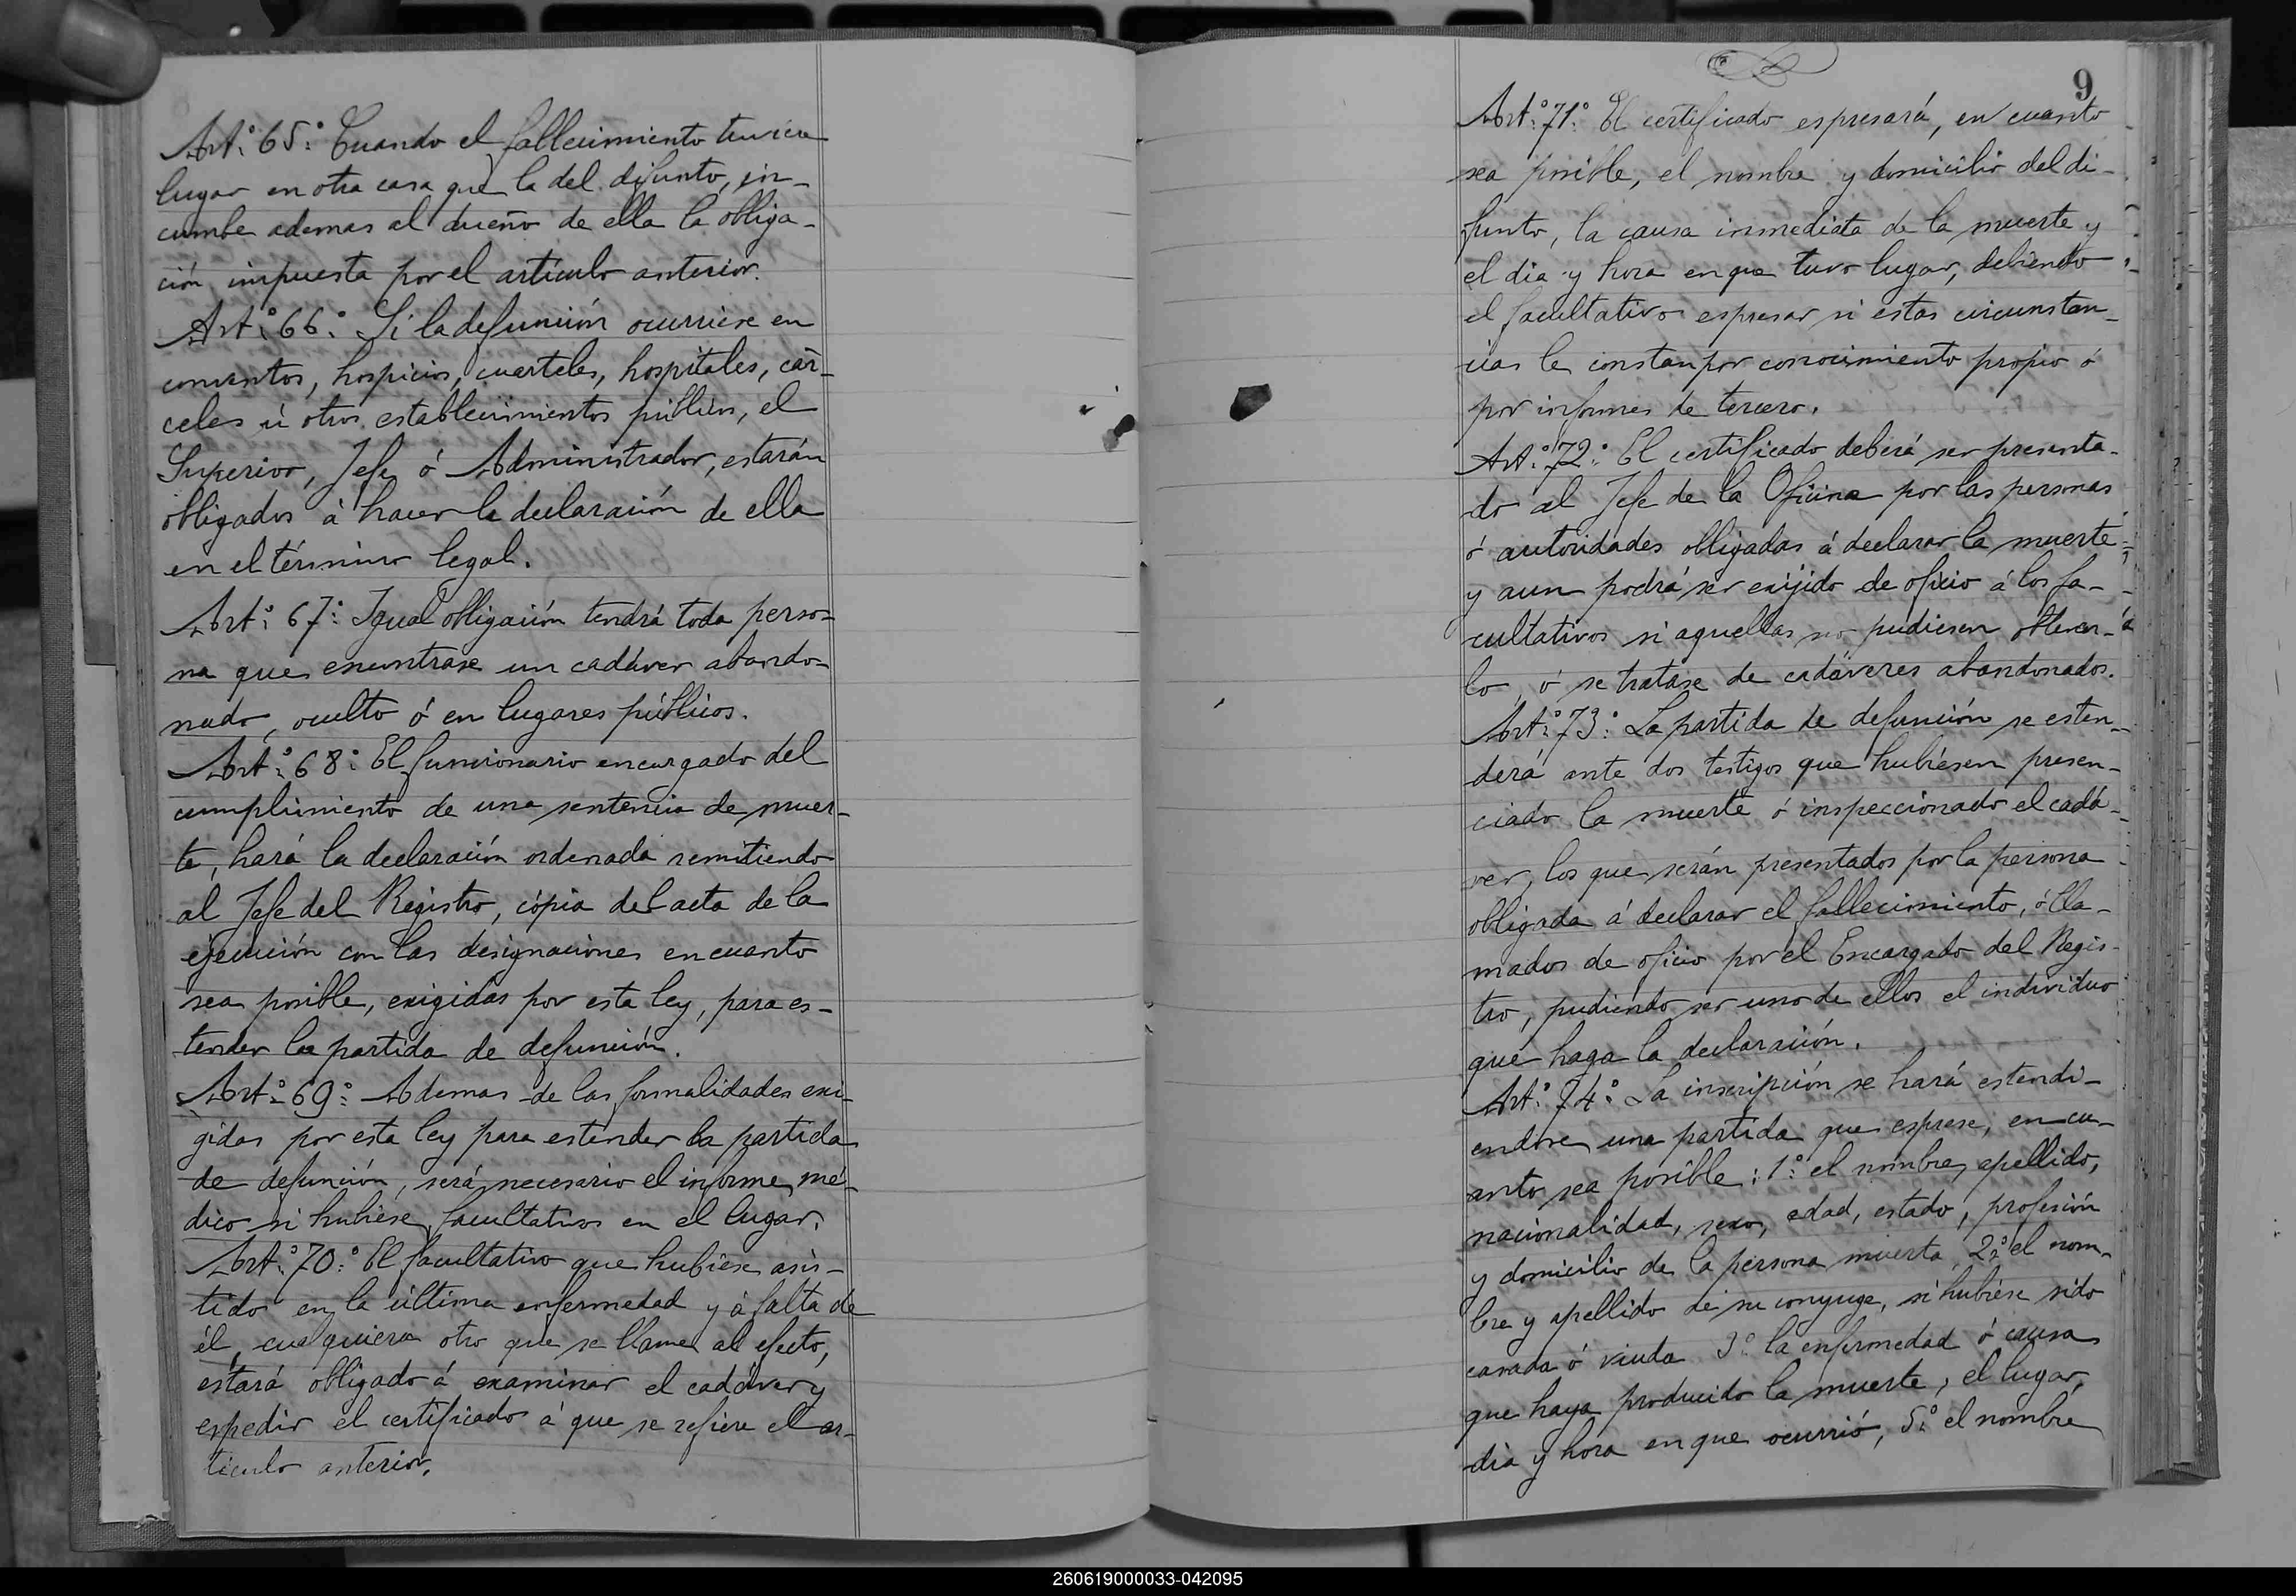 Art.º 65.º Cuando el fallecimiento tuviere
lugar en otra casa que la del difunto, in-
cumbe ademas al dueño de ella la obliga-
ción impuesta por el artículo anterior.
Art.º 66.º Si la defunción ocurriese en
conventos, hospicios, cuarteles, hospitales, cár-
celes ú otros establecimientos públicos, el
Superior, Jefe ó Administrador, estarán
obligados á hacer la declaración de ella
en el término legal.
Art.º 67.º Igual obligación tendrá toda perso-
na que encontrase un cadáver abando-
nado, oculto ó en lugares públicos.
Art.º 68.º El funcionario encargado del
cumplimiento de una sentencia de muer-
te, hará la declaración ordenada remitiendo
al Jefe del Registro, cópia del acta de la
ejecución con las designaciones en cuanto
sea posible, exigidas por esta ley, para es-
tender la partida de defunción.
Art.º 69.º Ademas de las formalidades exi-
gidas por esta ley para estender la partida
de defunción, será necesario el informe mé-
dico si hubiese facultativos en el lugar.
Art.º 70.º El facultativo que hubiese asis-
tido en la última enfermedad y á falta de
él, cualquiera otro que se llame al efecto,
estará obligado á examinar el cadáver y
espedir el certificado á que se refiere el ar-
tículo anterior.
9
Art.º 71.º El certificado espresará, en cuanto
sea posible, el nombre y domicilio del di-
funto, la causa inmediata de la muerte y
el dia y hora en que tuvo lugar, debiendo
el facultativo espresar si estas circunstan-
cias le constan por conocimiento propio ó
por informes de tercero.
Art.º 72.º El certificado deberá ser presenta-
do al Jefe de la Oficina por las personas
ó autoridades obligadas á declarar la muerte
y aun podrá ser exijido de oficio á los fa-
cultativos si aquellas no pudiesen obtener-
lo, ó se tratase de cadáveres abandonados.
Art.º 73.º La partida de defunción se esten-
derá ante dos testigos que hubiesen presen-
ciado la muerte ó inspeccionado el cadá-
ver, los que serán presentados por la persona
obligada á declarar el fallecimiento, ó lla-
mados de oficio por el Encargado del Regis-
tro, pudiendo ser uno de ellos el individuo
que haga la declaración.
Art.º 74.º La inscripción se hará estendi-
endose una partida que esprese, en cu-
anto sea posible: 1.º el nombre, apellido,
nacionalidad, sexo, edad, estado, profesión
y domicilio de la persona muerta, 2.º el nom-
bre y apellido de su conyuge, si hubiese sido
casada ó viuda 3.º la enfermedad ó causa
que haya producido la muerte, el lugar,
dia y hora en que ocurrió, 5.º el nombre
260619000033-042095